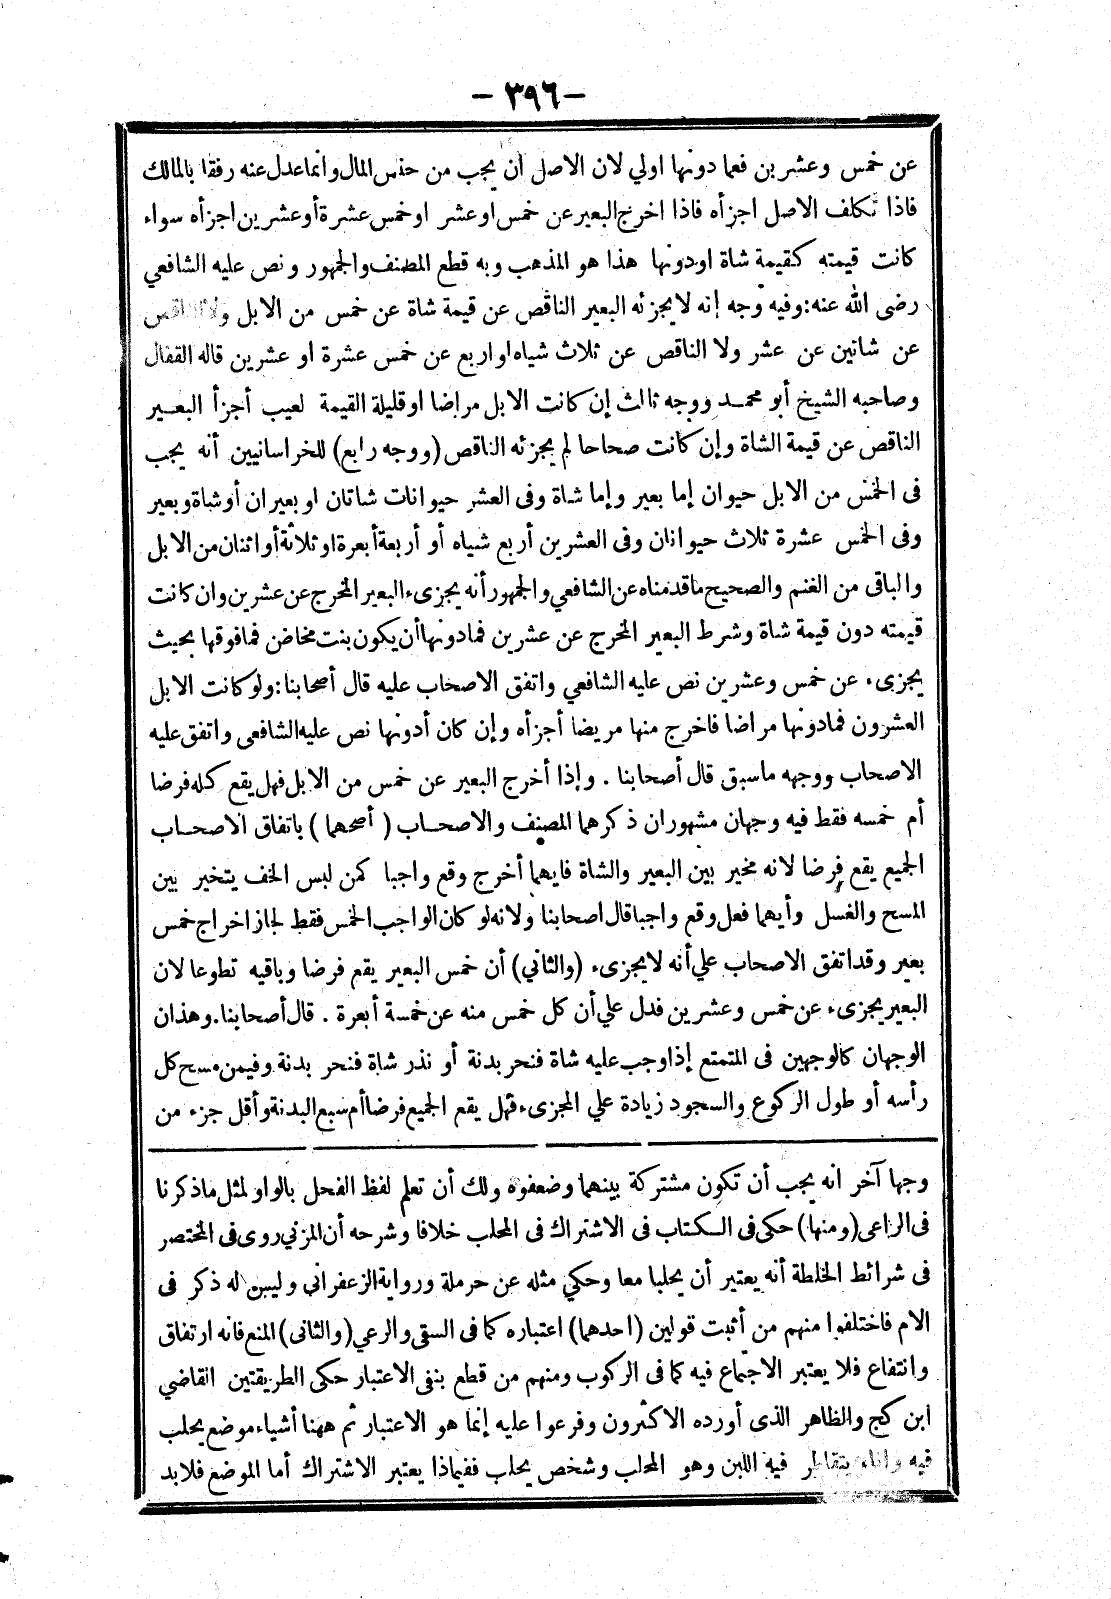 -٣٩٦-
عن خمس وعشرين فعما دونها اولي لان الاصل أن يجب من جنس المال وانما عدل عنه رفقا بالمالك
فاذا تكلف الاصل اجزأه فاذا اخرج البعير عن خمس او عشر او خمس عشرة أو عشرين اجزأه سواء
كانت قيمته كقيمة شاة او دونها هذا هو المذهب وبه قطع المصنف والجمهور ونص عليه الشافعي
رضى الله عنه: وفيه وجه إنه لا يجزئه البعير الناقص عن قيمة شاة عن خمس من الابل ولا الناقص
عن شاتين عن عشر ولا الناقص عن ثلاث شياه او اربع عن خمس عشرة او عشرين قاله القفال
وصاحبه الشيخ أبو محمد ووجه ثالث إن كانت الابل مراضا او قليلة القيمة لعيب أجزأ البعير
الناقص عن قيمة الشاة وإن كانت صحاحا لم يجزئه الناقص (ووجه رابع) للخراسانيين أنه يجب
فى الخمس من الابل حيوان إما بعير وإما شاة وفى العشر حيوانات شاتان او بعيران أو شاة وبعير
وفى الخمس عشرة ثلاث حيوانان وفى العشرين أربع شياه أو أربعة أبعرة او ثلاثة أو اثنان من الابل
والباقى من الغنم والصحيح ما قدمناه عن الشافعي والجمهور أنه يجزىء البعير المخرج عن عشرين وان كانت
قيمته دون قيمة شاة وشرط البعير المخرج عن عشرين فما دونها أن يكون بنت مخاض فما فوقها بحيث
يجزىء عن خمس وعشرين نص عليه الشافعي واتفق الاصحاب عليه قال أصحابنا: ولو كانت الابل
العشرون فما دونها مراضا فاخرج منها مريضا أجزأه وإن كان أدونها نص عليه الشافعى واتفق عليه
الاصحاب ووجهه ما سبق قال أصحابنا . وإذا أخرج البعير عن خمس من الابل فهل يقع كله فرضا
أم خمسه فقط فيه وجهان مشهوران ذكرهما المصنف والاصحاب (أصحهما) باتفاق الاصحاب
الجميع يقع فرضا لانه مخير بين البعير والشاة فايهما أخرج وقع واجبا كمن لبس الخف يتخير بين
المسح والغسل وأيهما فعل وقع واجبا قال اصحابنا ولانه لو كان الواجب الخمس فقط لجاز اخراج خمس
بعير وقد اتفق الاصحاب علي أنه لا يجزىء (والثاني) أن خمس البعير يقع فرضا وباقيه تطوعا لان
البعير يجزىء عن خمس وعشرين فدل علي أن كل خمس منه عن خمسة أبعرة . قال أصحابنا. وهذان
الوجهان كالوجهين فى المتمتع إذا وجب عليه شاة فنحر بدنة أو نذر شاة فنحر بدنة وفيمن مسح كل
رأسه أو طول الركوع والسجود زيادة علي المجزىء فهل يقع الجميع فرضا أم سبع البدنة وأقل جزء من
وجها آخر انه يجب أن تكون مشتركة بينهما وضعفوه ولك أن تعلم لفظ الفحل بالواو لمثل ما ذكرنا
فى الراعى (ومنها) حكى فى الكتاب فى الاشتراك فى المحلب خلافا وشرحه أن المزني روى فى المختصر
فى شرائط الخلطة أنه يعتبر أن يحلبا معا وحكي مثله عن حرملة ورواية الزعفرانى وليس له ذكر فى
الام فاختلفوا منهم من أثبت قولين (احدهما) اعتباره كما فى السقى والرعي (والثانى) المنع فانه ارتفاق
وانتفاع فلا يعتبر الاجتماع فيه كما فى الركوب ومنهم من قطع بنفى الاعتبار حكى الطريقتين القاضي
ابن كج والظاهر الذى أورده الاكثرون وفرعوا عليه إنما هو الاعتبار ثم ههنا أشياء موضع يحلب
فيه واناء يتقاطر فيه اللبن وهو المحلب وشخص يحلب ففيماذا يعتبر الاشتراك أما الموضع فلا بد